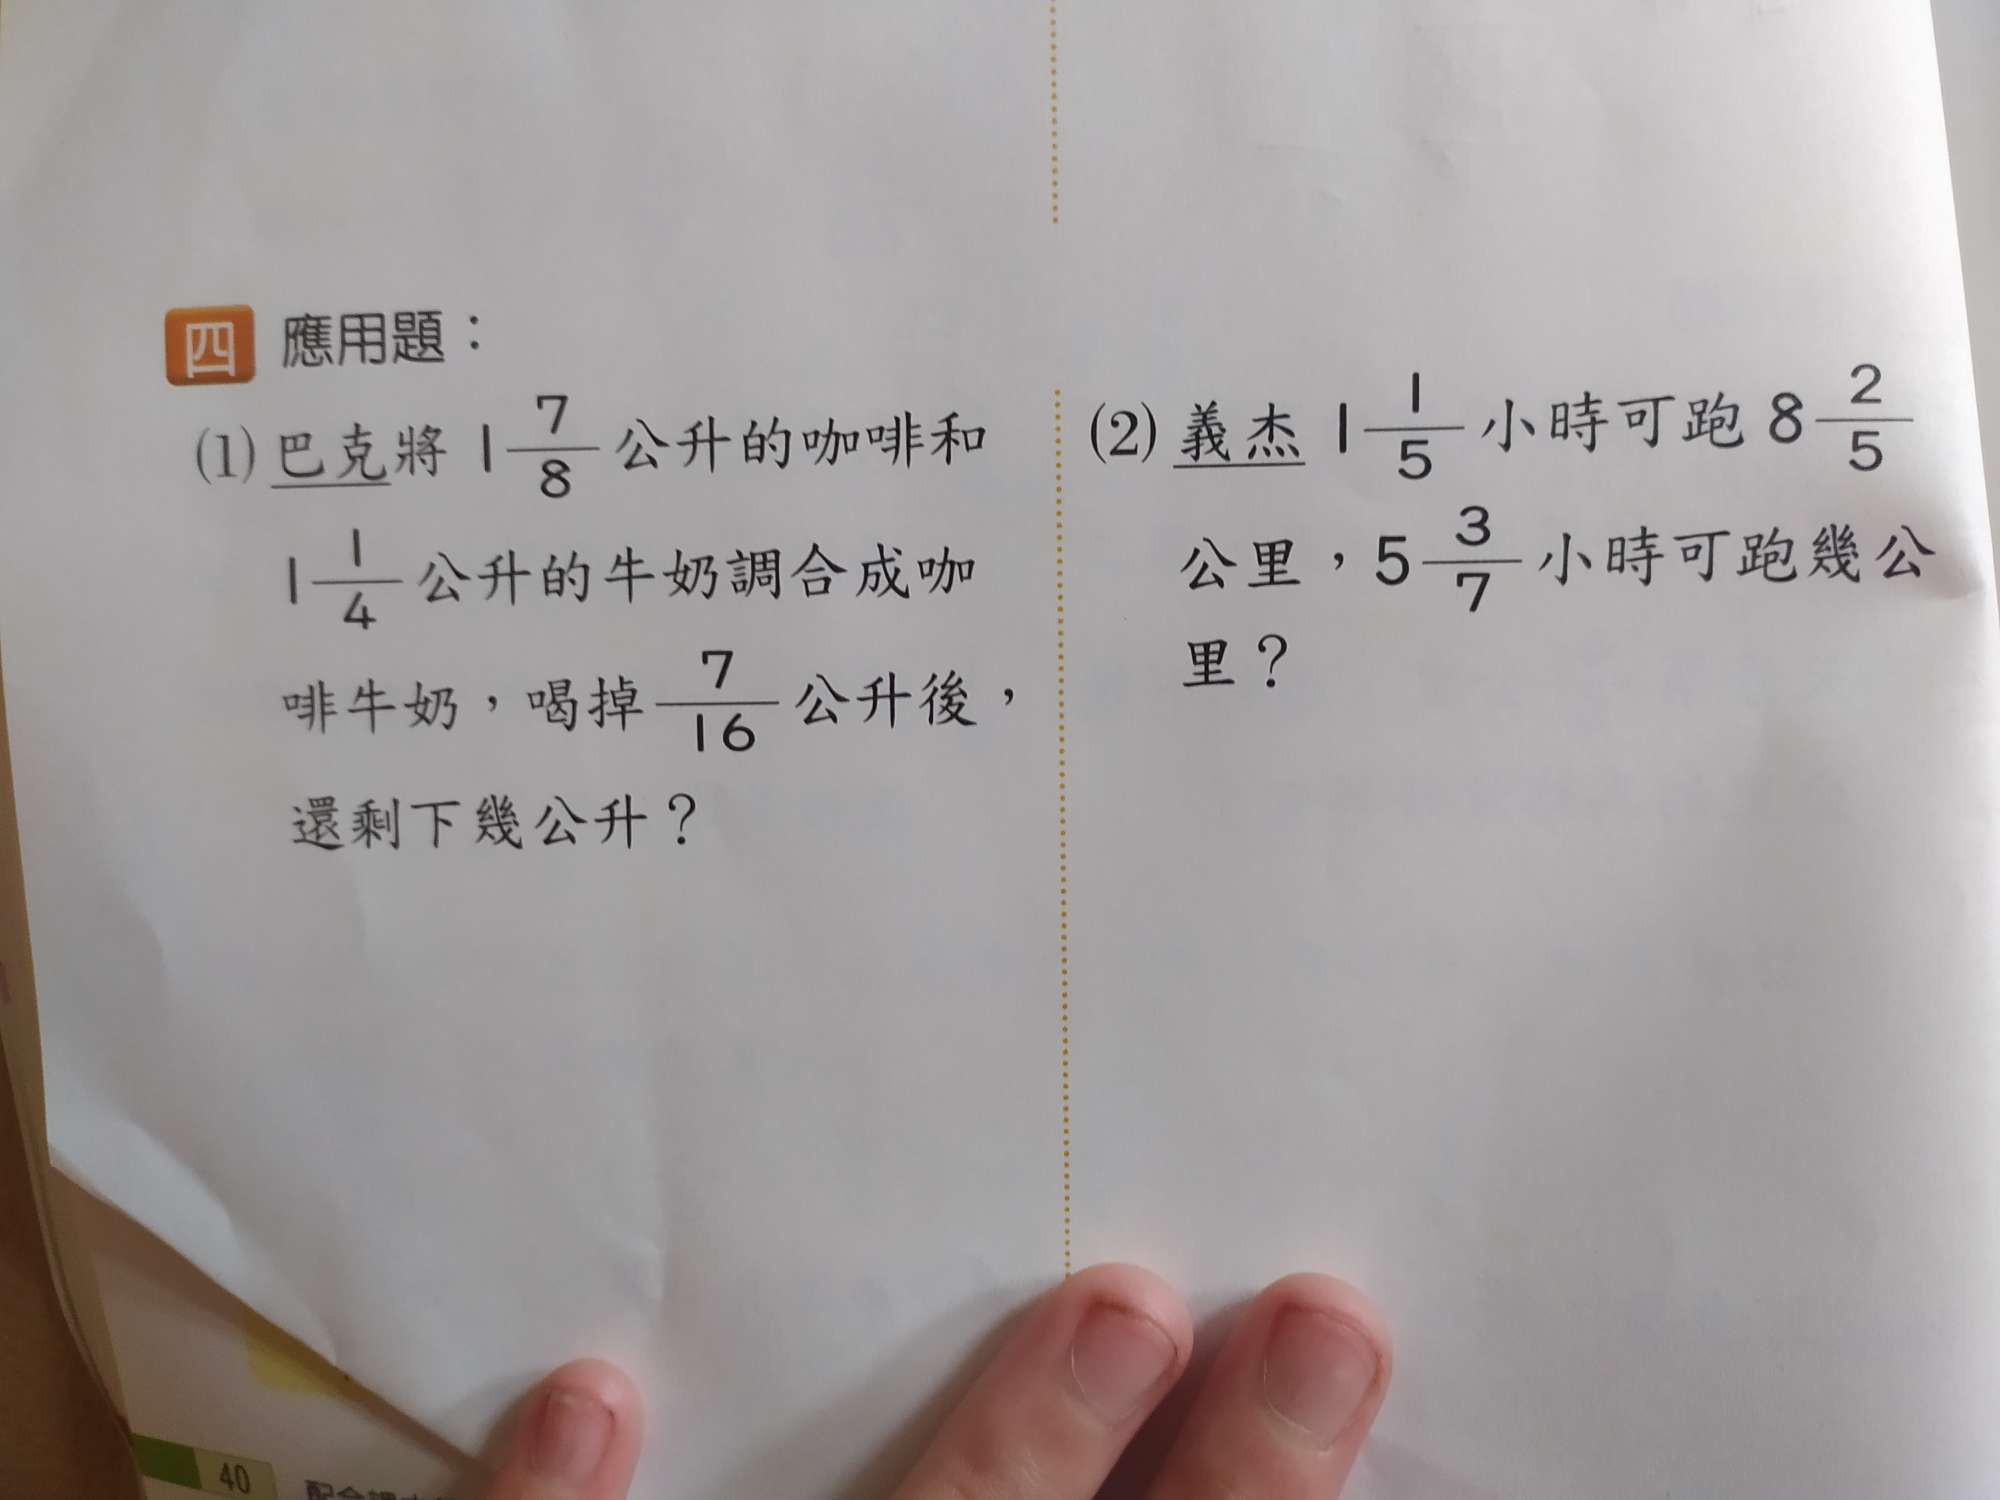 四 應用題：
(1) 巴克將 1 7/8 公升的咖啡和
1 1/4 公升的牛奶調合成咖
啡牛奶，喝掉 7/16 公升後，
還剩下幾公升？
(2) 義杰 1 1/5 小時可跑 8 2/5
公里，5 3/7 小時可跑幾公
里？
40